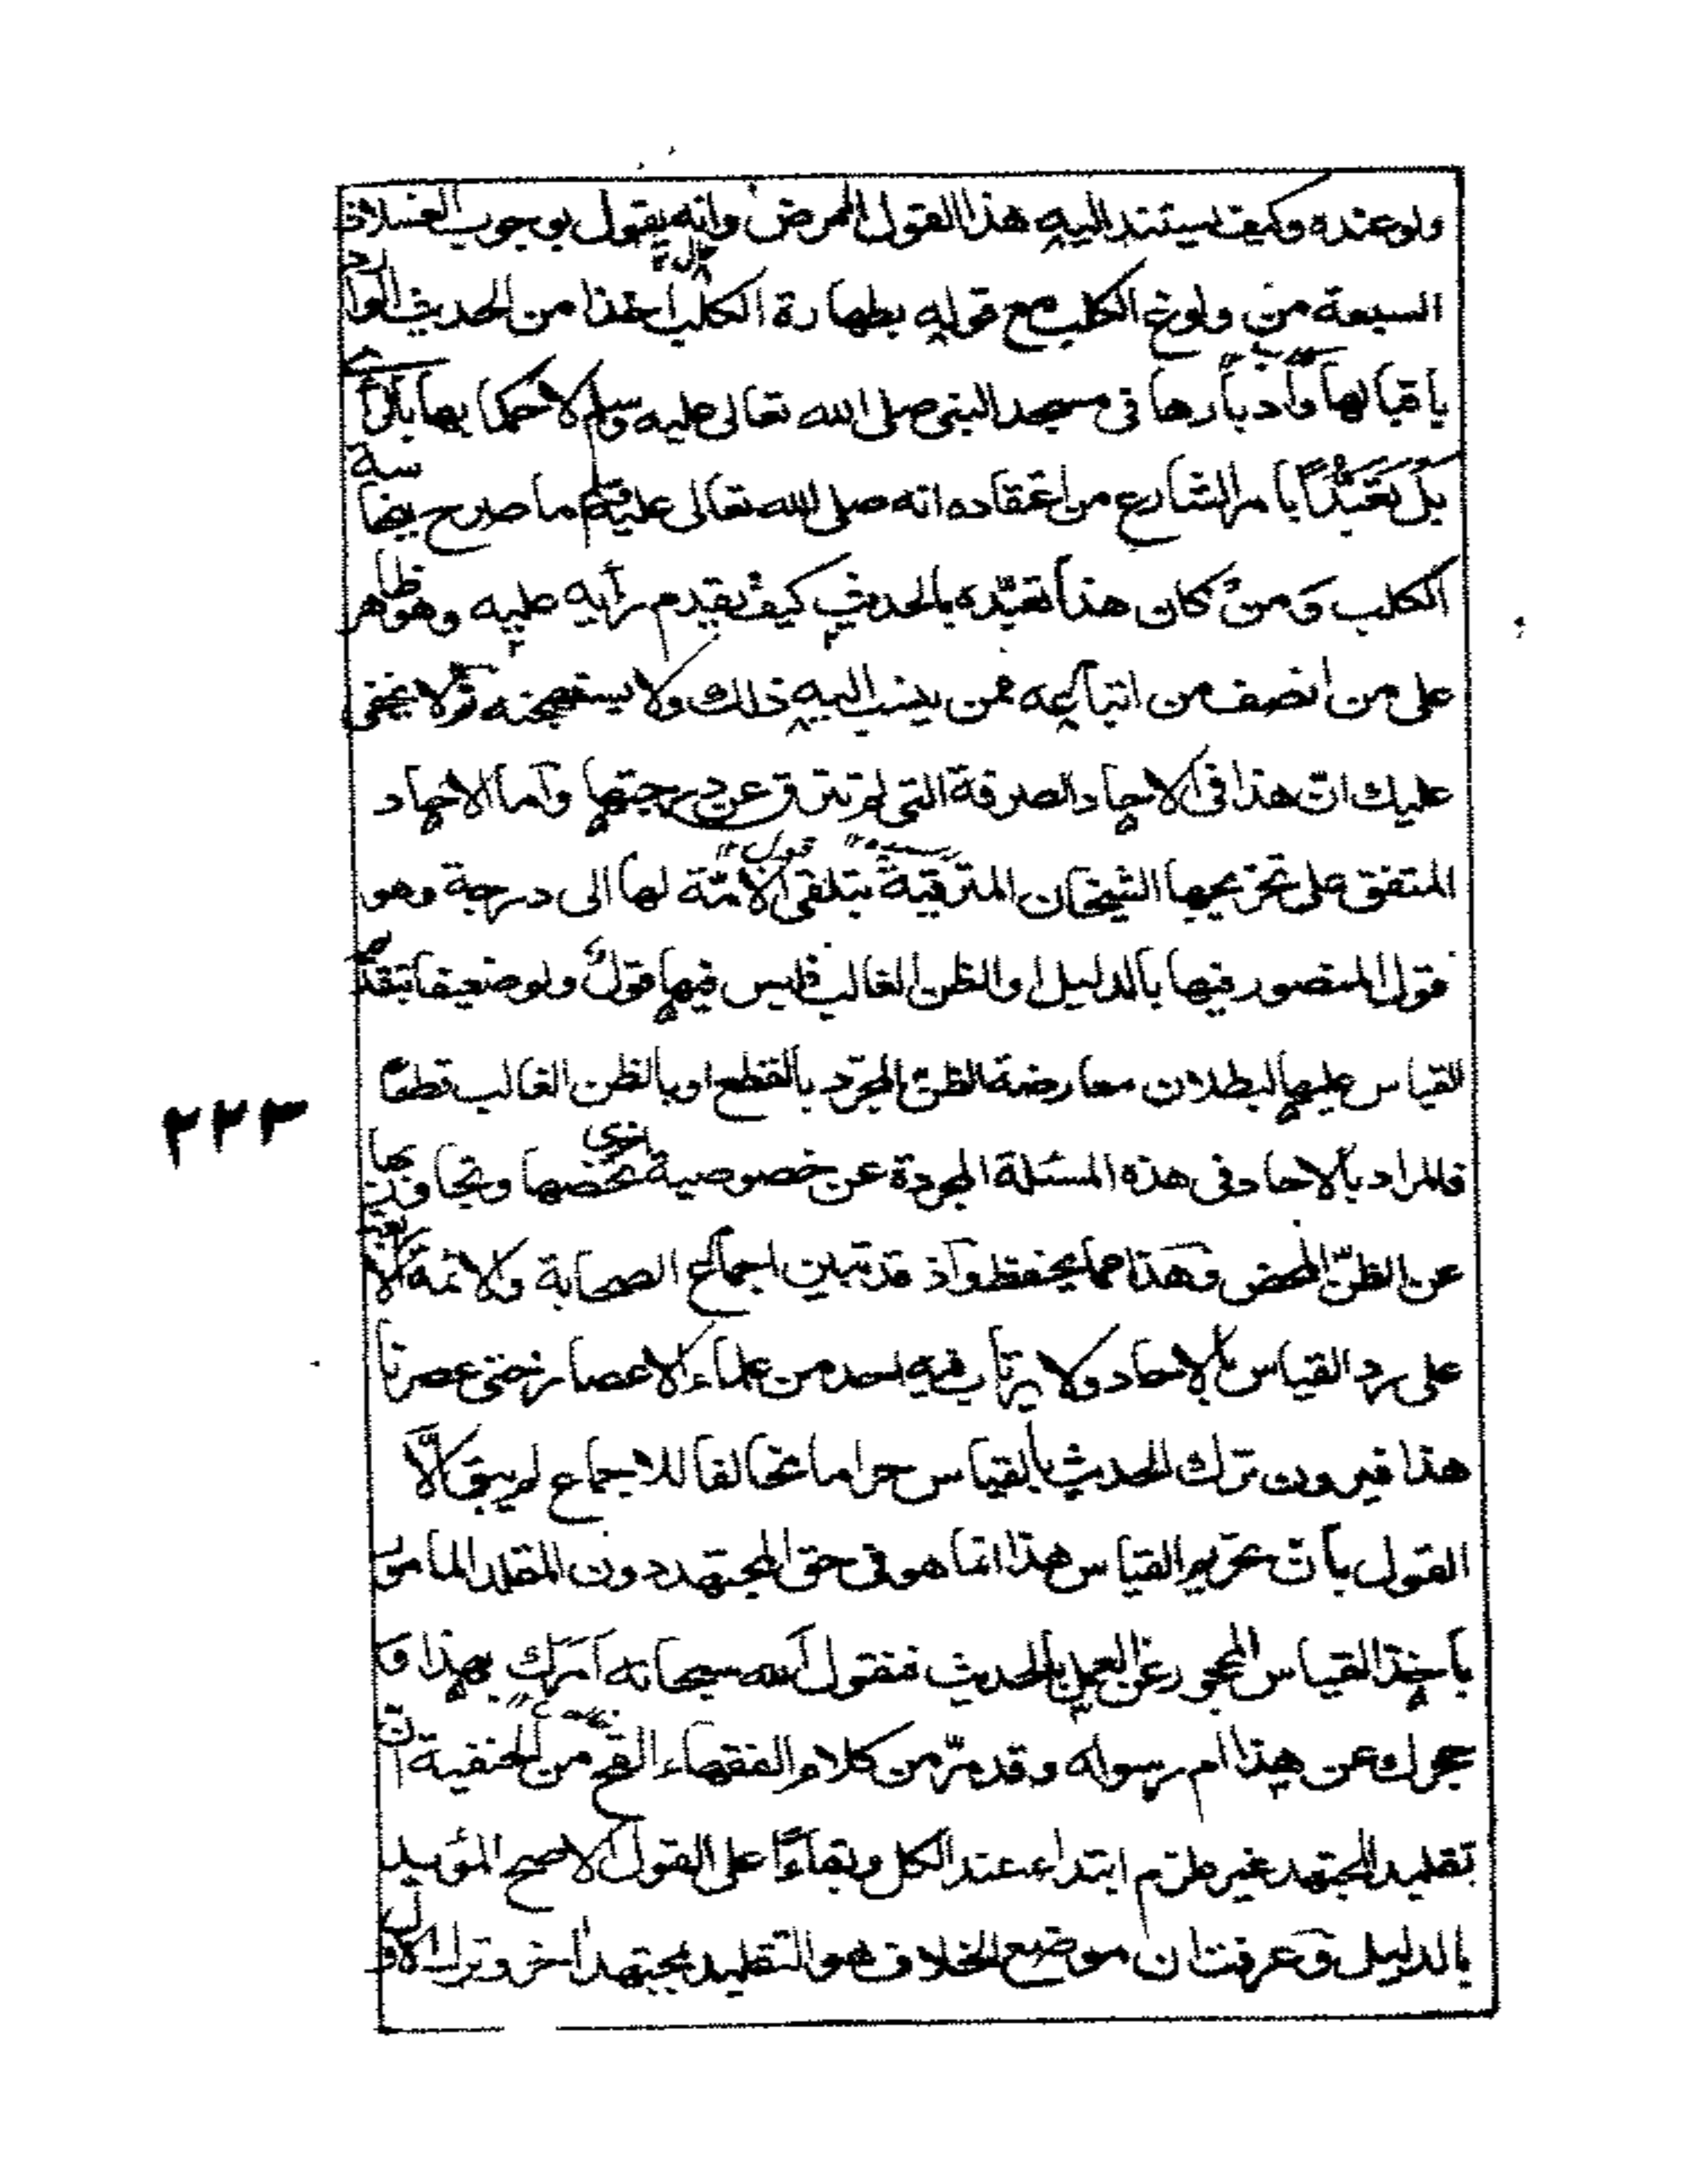 ولو عنده وكيف يستند اليه هذا القول الممرض وانه يقول بوجوب الغسلات
السبعة من ولوغ الكلب مع قوله بطهارة الكلب اخذا من الحديث الوارد
باقبالها وادبارها فى مسجد النبى صلى الله تعالى عليه وسلم لا حكما بها بالرأى
بل تعبُّداً بامر الشارع من اعتقاده انه صلى الله تعالى عليه وسلم ما صرح بنجاسة
الكلب ومن كان هذا تعبّده بالحديث كيف يقدم رأيه عليه وهو ظاهر
على من انصف من اتباعه ممن ينسب اليه ذلك ولا يستهجنه ولا يخفى
عليك انّ هذا فى الاحاد الصرفة التى لم تترق عن درجتها وآما الاحاد
المتفق على تخريجها الشيخان المترقية بتلقى الامّة لها الى درجة وهو
قول المنصور فيها بالدليل او الظن الغالب فليس فيها قولٌ ولو ضعيفا بتقدم
القياس عليها لبطلان معارضة الظنّ المجرّد بالقطع او بالظن الغالب قطعا
فالمراد بالاحاد فى هذه المسئلة المجردة عن خصوصية اخرى تخصها وتجاوز بها
عن الظنّ المحض وهذا مما يحفظ وآذ قد تبين اجماع الصحابة والائمة الاربعة
على رد القياس بالاحاد ولا يرتاب فيه احد من علماء الاعصار حتى عصرنا
هذا فيرون ترك الحديث بالقياس حراما مخالفا للاجماع لم يبق الّا
القول بانّ تحريم القياس هذا انما هو فى حق المجتهد دون المقلد المامور
باخذ القياس المحجور عن العمل بالحديث فنقول آلله سبحانه آمرك بهذا و
حجرك عن هذا ام رسوله وقد مرّ من كلام الفقهاء القح من الحنفية انّ
تقليد المجتهد غير ملزم ابتداء عند الكل وبقاءاً على القول الاصح المؤيد
بالدليل وعرفت ان موضع الخلاف هو التقليد بمجتهد اٰخر وترك الاول
٢٢٣